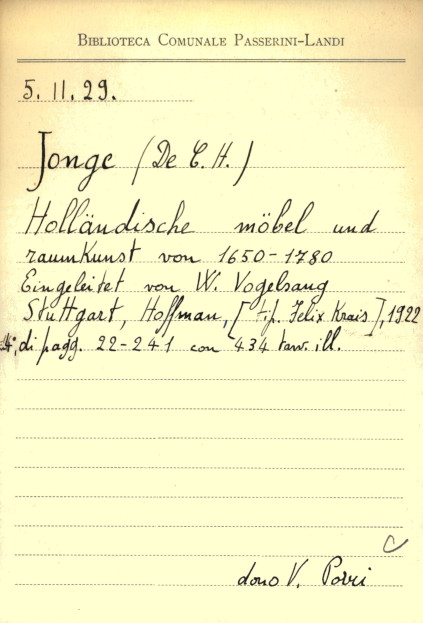 BIBLIOTECA COMUNALE PASSERINI-LANDI
5. 11. 29.
Jonge (De C. H.)
Holländische möbel und
raumkunst von 1650-1780
Eingeleitet von W. Vogelsang
Stuttgart, Hoffman, [tip. Felix Krais], 1922
4°, di pagg. 22-241 con 434 tav. ill.
dono V. Porri